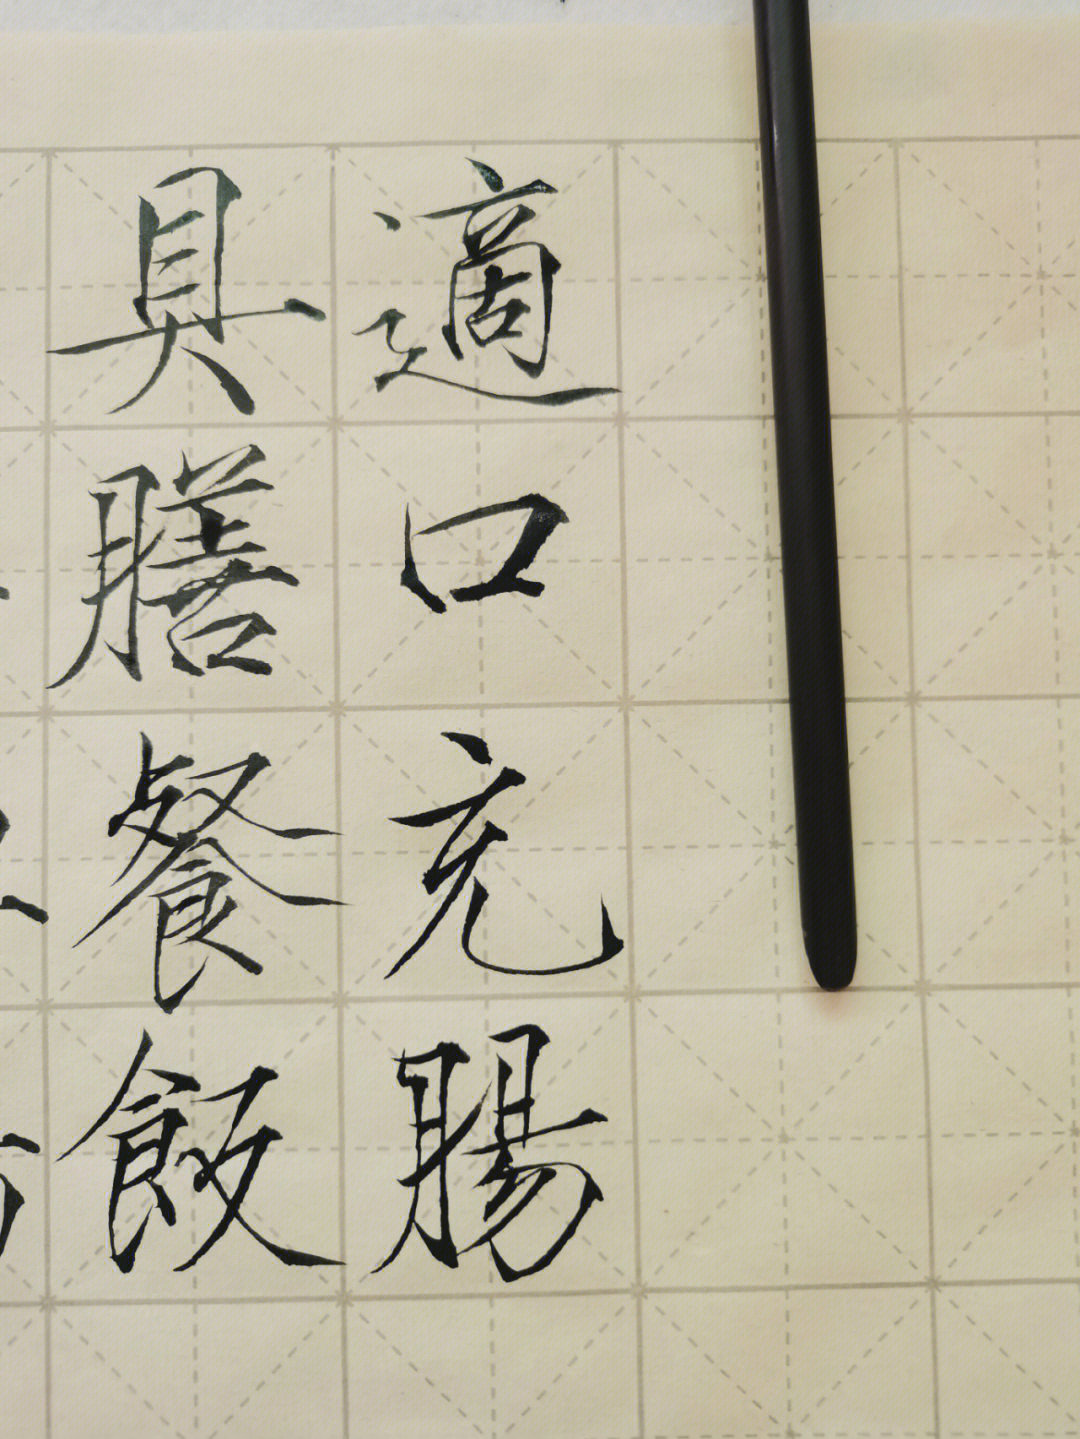 適口充腸
具膳餐飯